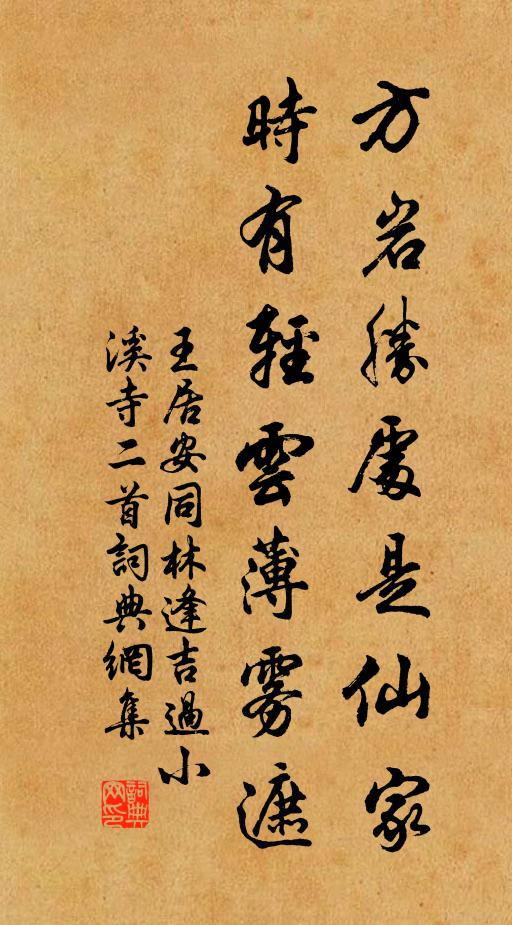 方岩勝處是仙家
時有輕雲薄雾遮
王居安同林逢吉過小
溪寺二首詞典網集
詞典
网印